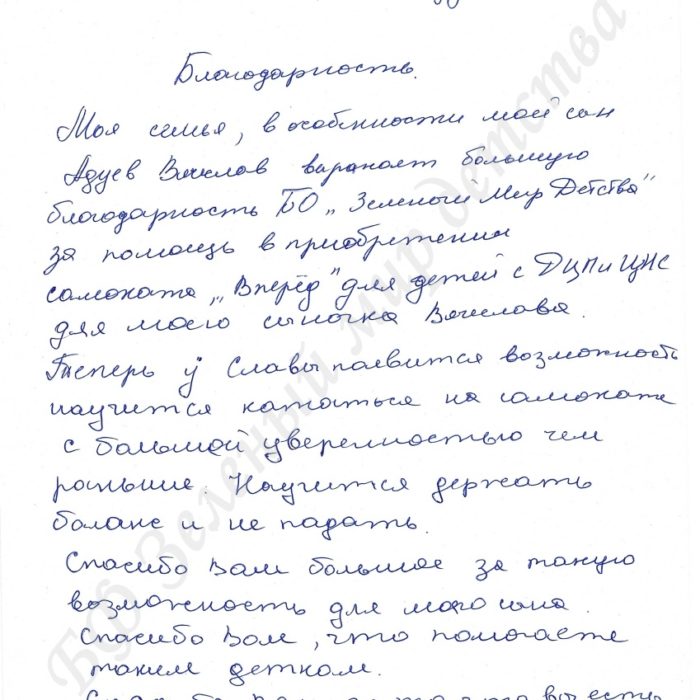 Благодарность.
Моя семья, в особенности мой сын
Адуев Вячеслав варажает большую
благодарность БО „Зеленый Мир Детства"
за помощь в приобретении
самоката „Вперёд" для детей с ДЦП и ЦНС
для моего сыночка Вячеслава.
Теперь у Славы появится возможность
научится кататься на самокате
с большой уверенностью чем
раньше. Научится держать
баланс и не падать.
Спасибо Вам большое за такую
возможность для моего сына.
Спасибо Вам, что помогаете
таким деткам.
БФ Зеленый мир детства